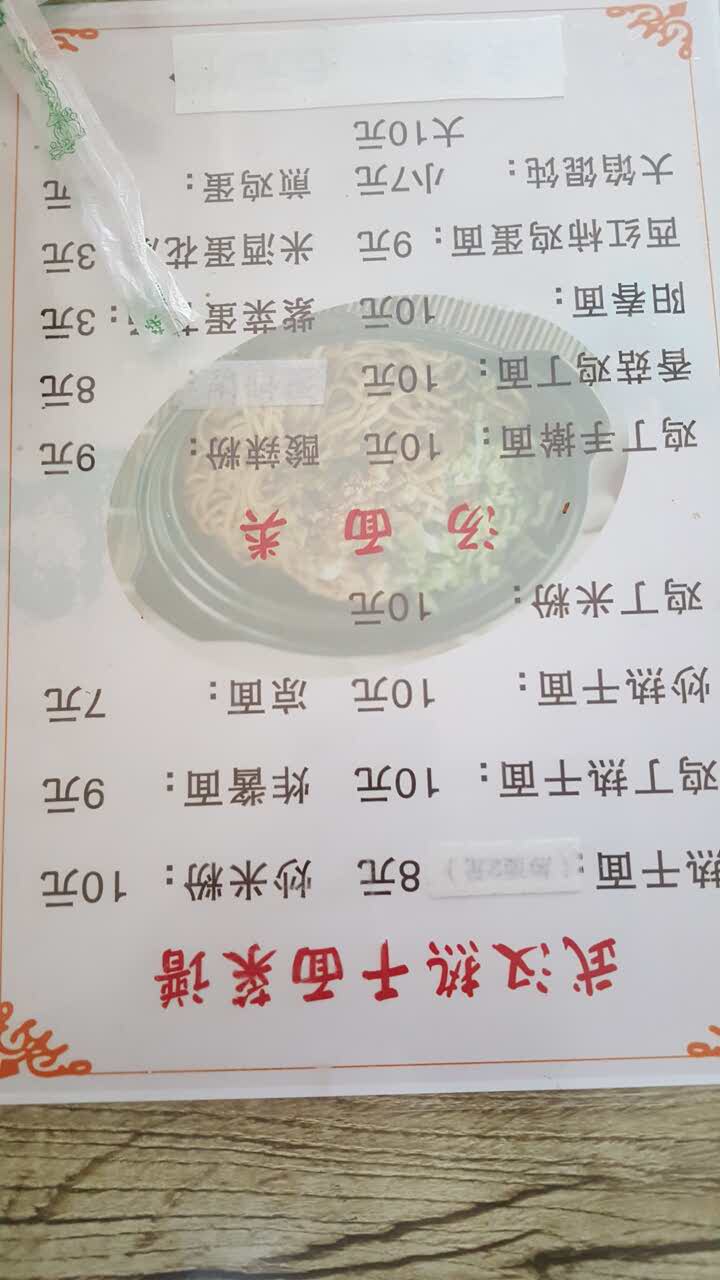 武汉热干面菜谱
热干面: 8元 炒米粉: 10元
鸡丁热干面: 10元 炸酱面: 9元
炒热干面: 10元 凉面: 7元
鸡丁米粉: 10元
汤面类
鸡丁手擀面: 10元 酸辣粉: 9元
香菇鸡丁面: 10元 8元
阳春面: 10元 紫菜蛋 : 3元
西红柿鸡蛋面: 9元 米酒蛋花 3元
大馅馄饨: 小7元 煎鸡蛋: 元
大10元